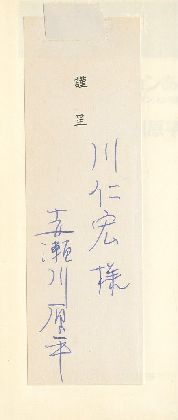 謹呈
川仁宏様
赤瀬川原平